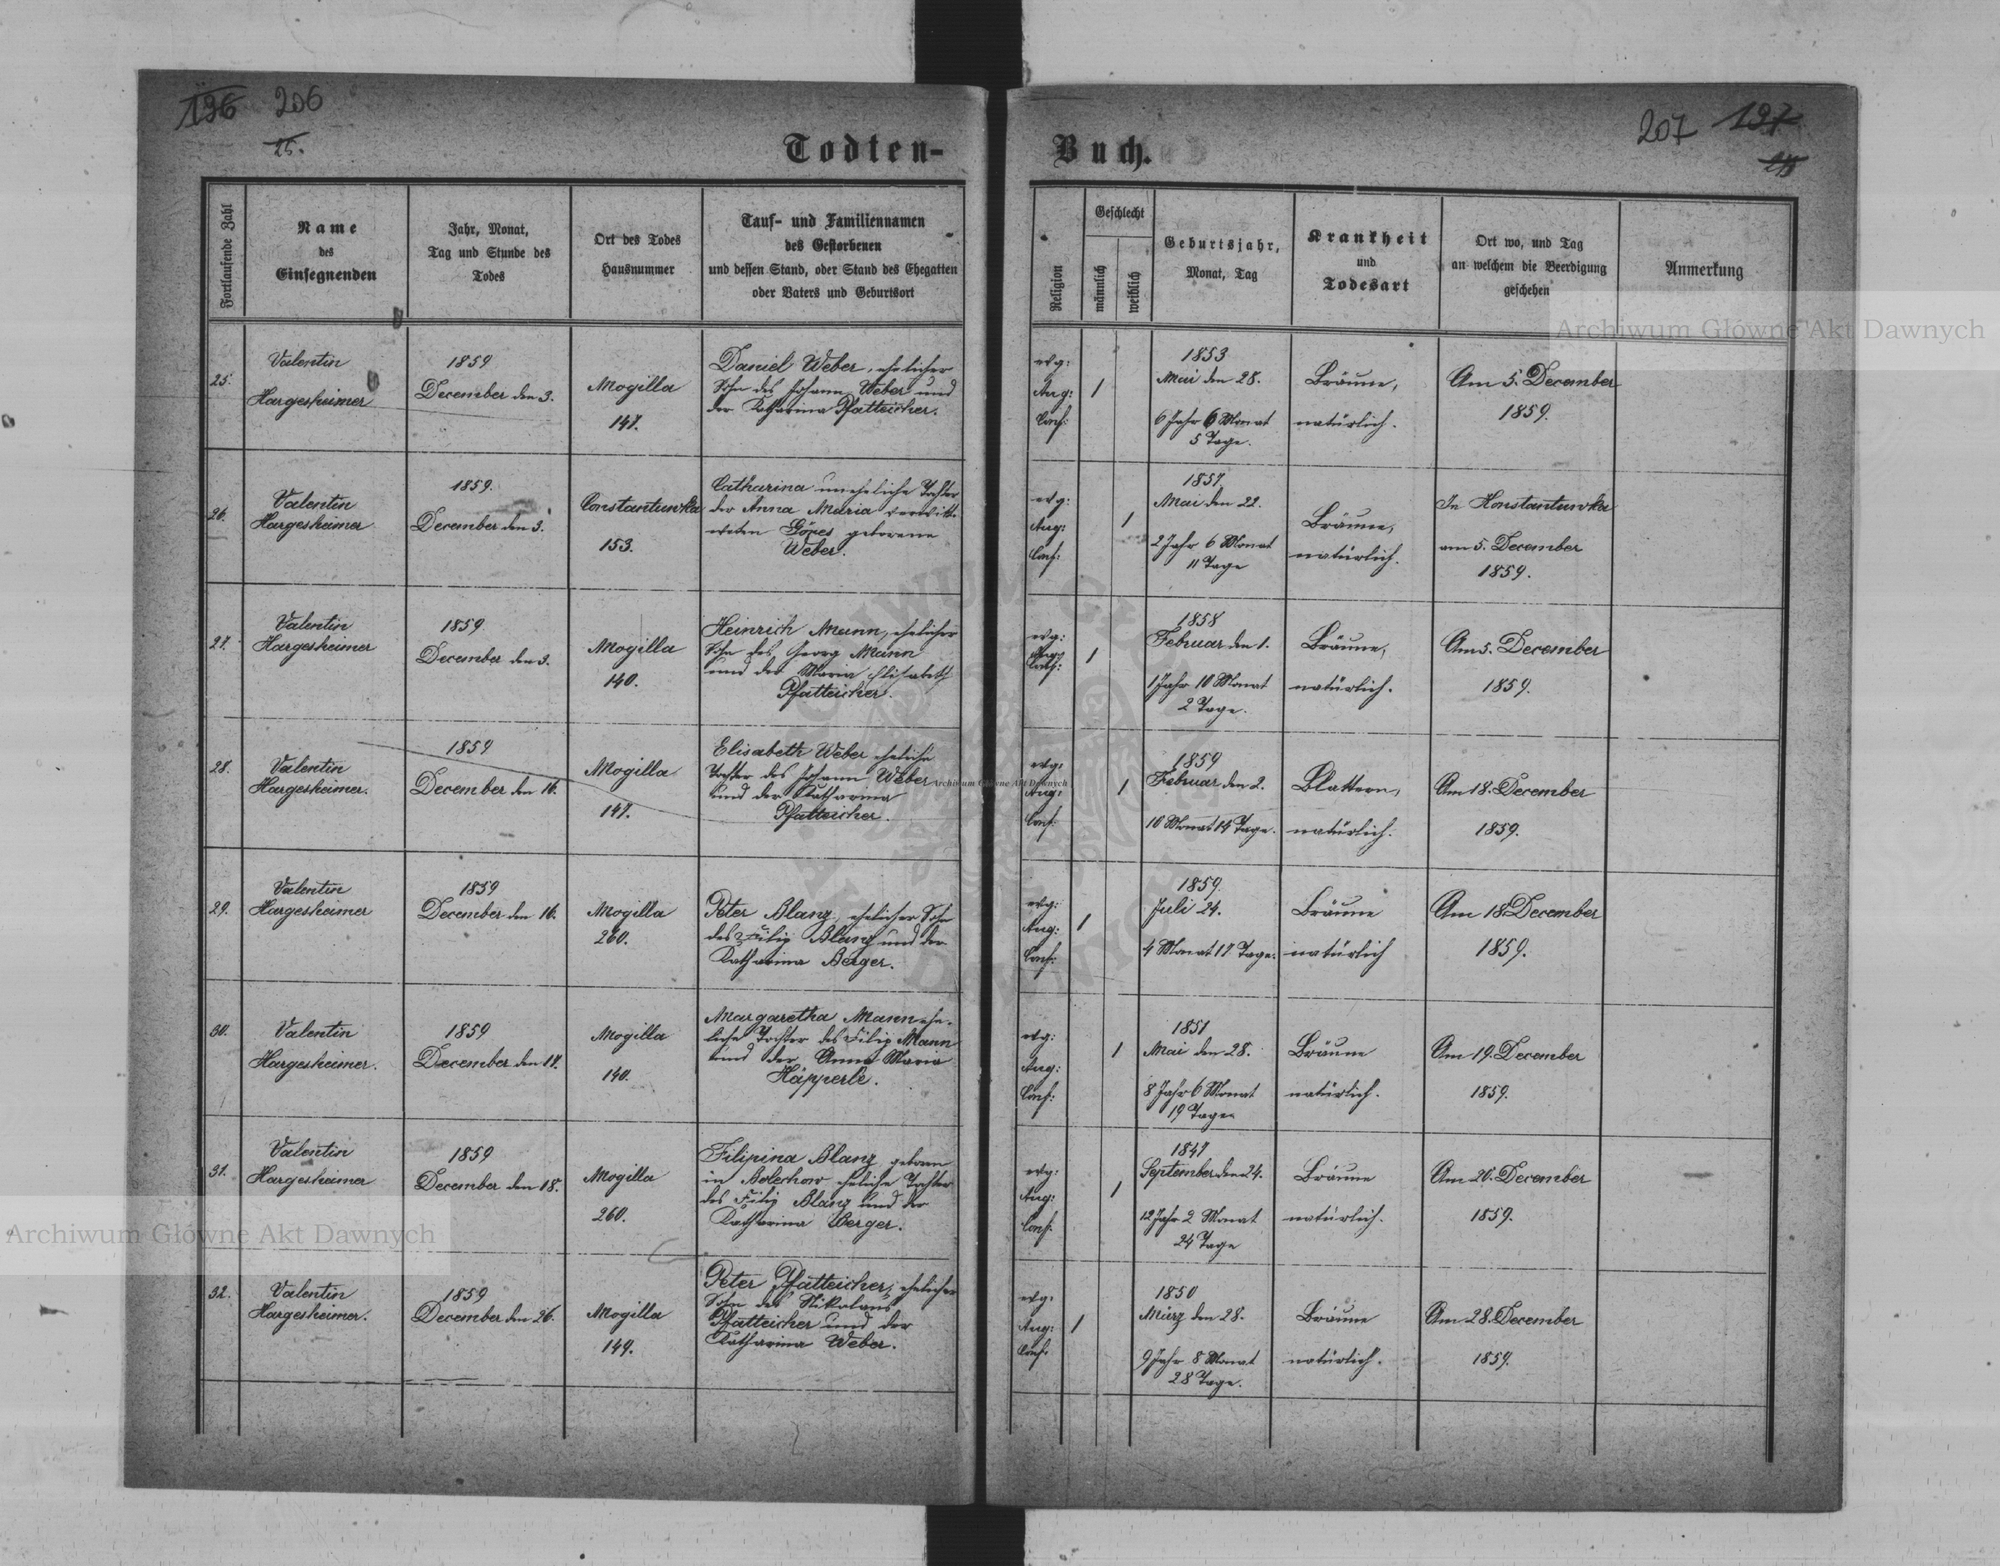 196 206
25.
Todten-
Fortlaufende Zahl
Name
des
Einsegnenden
Jahr, Monat,
Tag und Stunde des
Todes
Ort des Todes
Hausnummer
Tauf- und Familiennamen
des Gestorbenen
und dessen Stand, oder Stand des Ehegatten
oder Vaters und Geburtsort
25.
Valentin
Hargesheimer
1859
December den 3.
Mogilla
147.
Daniel Weber, ehelicher
Sohn des Johann Weber und
der Katharina Pfatteicher.
26.
Valentin
Hargesheimer
1859.
December den 3.
Constantuwka
153.
Catharina uneheliche Tochter
der Anna Maria verwitt-
weten Göres geborene
Weber.
27.
Valentin
Hargesheimer
1859.
December den 3.
Mogilla
140.
Heinrich Mann, ehelicher
Sohn des Georg Mann
und der Maria Elisabeth
Pfatteicher.
28.
Valentin
Hargesheimer.
1859
December den 16.
Mogilla
147.
Elisabeth Weber eheliche
Tochter des Johann Weber
und der Katharina
Pfatteicher.
29.
Valentin
Hargesheimer
1859
December den 16.
Mogilla
260.
Peter Blanz, ehelicher Sohn
des Filip Blanz und der
Katharina Berger.
30.
Valentin
Hargesheimer.
1859
December den 17.
Mogilla
140.
Margaretha Mann ehe-
liche Tochter des Filip Mann
und der Anna Maria
Häpperle.
31.
Valentin
Hargesheimer
1859
December den 18.
Mogilla
260.
Filipina Blanz geboren
in Bolechow eheliche Tochter
des Filip Blanz und der
Katharina Berger.
32.
Valentin
Hargesheimer.
1859
December den 26.
Mogilla
149.
Peter Pfatteicher, ehelicher
Sohn des Nikolaus
Pfatteicher und der
Katharina Weber.
207 197
Buch.
Religion
Geschlecht
männlich
weiblich
Geburtsjahr,
Monat, Tag
Krankheit
und
Todesart
Ort wo, und Tag
an welchem die Beerdigung
geschehen
Anmerkung
evg:
Aug:
Conf:
1
1853
Mai den 28.
6 Jahr 6 Monat
5 Tage.
Bräune,
natürlich.
Am 5. December
1859.
evg:
Aug:
Conf:
1
1857
Mai den 22.
2 Jahr 6 Monat
11 Tage
Bräune,
natürlich.
In Konstantuwka
am 5. December
1859.
evg:
Aug:
Conf:
1
1858
Februar den 1.
1 Jahr 10 Monat
2 Tage.
Bräune,
natürlich.
Am 5. December
1859.
evg:
Aug:
Conf:
1
1859
Februar den 2.
10 Monat 14 Tage.
Blattern,
natürlich.
Am 18. December
1859.
evg:
Aug:
Conf:
1
1859.
Juli 24.
4 Monat 17 Tage.
Bräune
natürlich
Am 18. December
1859.
evg:
Aug:
Conf:
1
1851
Mai den 28.
8 Jahr 6 Monat
19 Tage.
Bräune
natürlich.
Am 19. December
1859.
evg:
Aug:
Conf:
1
1847
September den 24.
12 Jahr 2 Monat
24 Tage
Bräune
natürlich.
Am 20. December
1859.
evg:
Aug:
Conf:
1
1850
März den 28.
9 Jahr 8 Monat
28 Tage.
Bräune
natürlich.
Am 28. December
1859.
Archiwum Główne Akt Dawnych
Archiwum Główne Akt Dawnych
Archiwum Główne Akt Dawnych